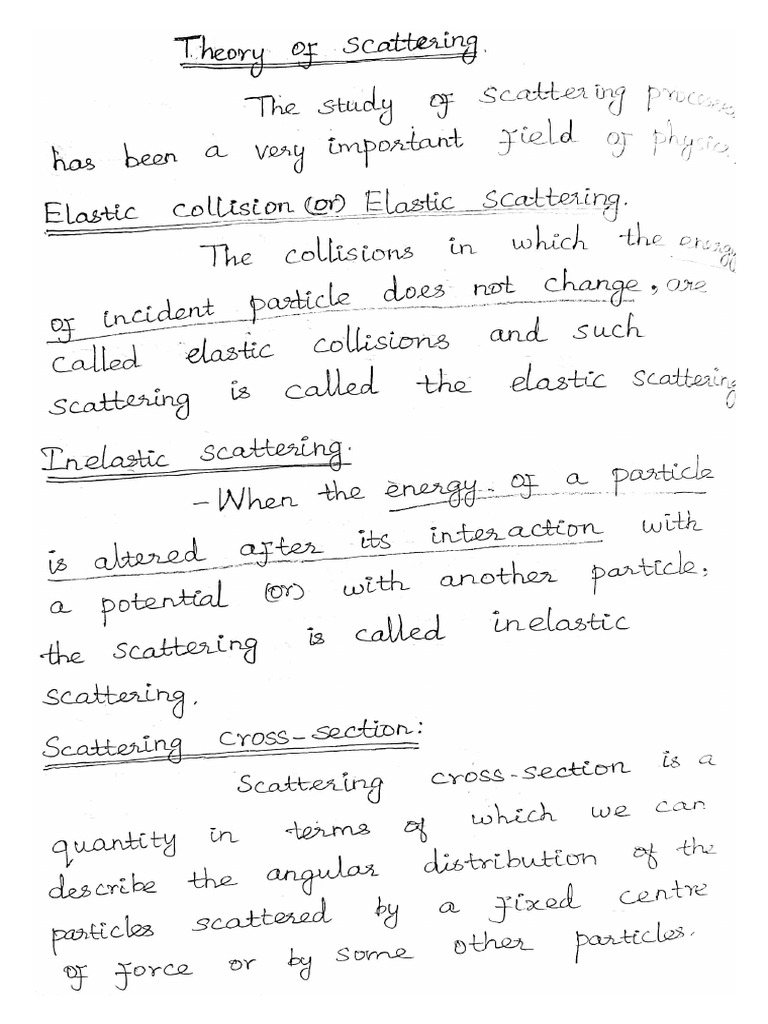 Theory of Scattering.
The study of scattering processes
has been a very important field of physics.
Elastic collision (or) Elastic scattering.
The collisions in which the energy
of incident particle does not change, are
called elastic collisions and such
scattering is called the elastic scattering
Inelastic scattering.
- When the energy of a particle
is altered after its interaction with
a potential (or) with another particle,
the scattering is called inelastic
scattering.
Scattering cross-section:
Scattering cross-section is a
quantity in terms of which we can
describe the angular distribution of the
particles scattered by a fixed centre
of force or by some other particles.